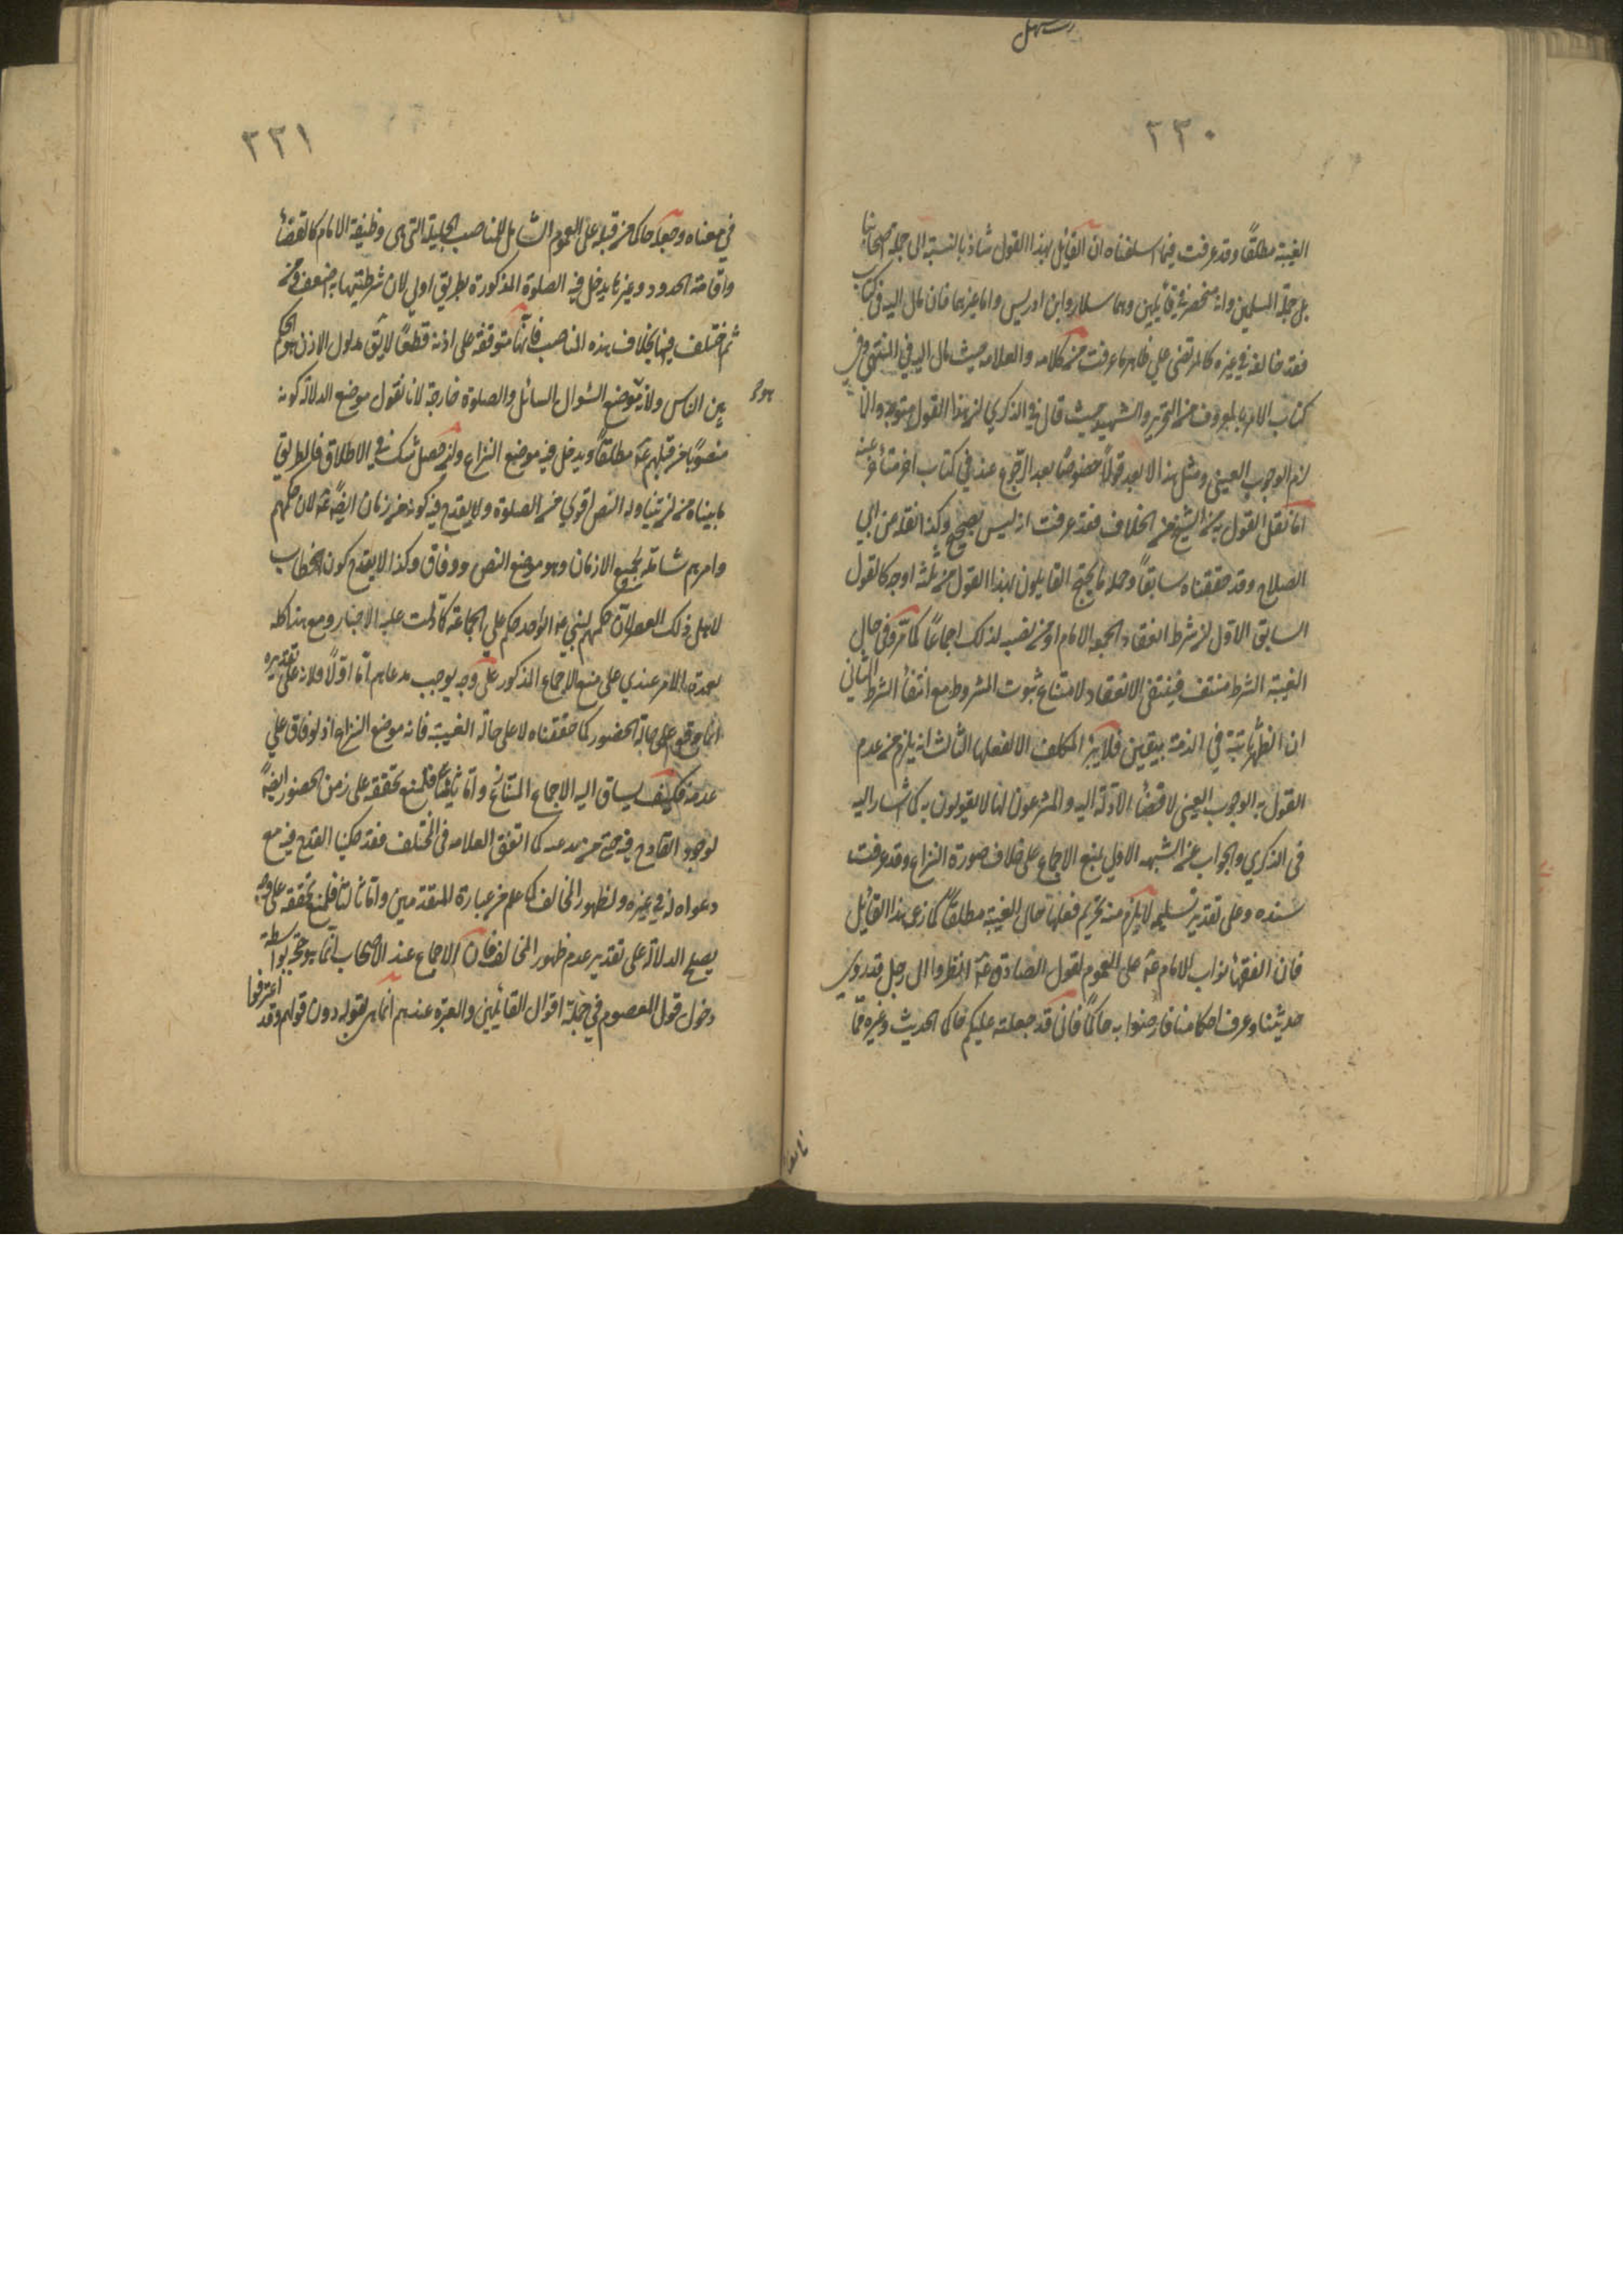 ٢٣٠
الغيبة مطلقًا وقد عرفت فيما اسلفناه ان القايل بهذا القول شاذ بالنسبة الى جملة اصحابنا
بل جملة المسلمين وانه منحصر في قايلين وهما سلار وابن ادريس واما غيرهما فان مال اليه في كتاب
فقد خالفه في غيره كالمرتضى على ظاهر ما عرفت من كلامه والعلامه حيث مال اليه في المنتهى وفي
كتاب الامر بالمعروف من التحرير والشهيد حيث قال في الذكرى ان هذا القول متوجه والا
لزم الوجوب العينى ومثل هذا لا يعد قولًا خصوصًا بعد الرجوع عنه في كتاب اخر متأخر عنه
اما نقل القول به من الشيخ من الخلاف فقد عرفت انه ليس بصحيح وكذا نقله من ابي
الصلاح وقد حققناه سابقًا وجملة ما يحتج القايلون بهذا القول من ثلثة اوجه كالقول
السابق الاول ان شرط انعقاد الجمعة الامام او من نصبه لذلك اجماعًا كما مر وفى حال
الغيبة الشرط منتف فينتفى الانعقاد لامتناع ثبوت المشروط مع انتفاء الشرط الثاني
ان الظهر ثابتة في الذمة بيقين فلا يبرأ المكلف الا بفعلها الثالث انه يلزم من عدم
القول به الوجوب العينى لاقتضاء الادلة اليه والمشرعون لها لا يقولون به كما اشار اليه
فى الذكري والجواب عن الشبهه الاولى بمنع الاجماع على خلاف صورة النزاع وقد عرفت
سنده وعلى تقدير تسليمه لا يلزم منه تحريم فعلها حال الغيبة مطلقًا كما زعم هذا القائل
فان الفقهاء نواب للامام عه على العموم لقول الصادق عه انظروا الى رجل قد روى
حديثنا وعرف احكامنا فارضوا به حاكمًا فانى قد جعلته عليكم حاكما الحديث وغيره مما
٢٣١
في معناه وجعله حاكما من قبله على العموم الشامل للمناصب الجليلة التى هى وظيفة الامام كالقضاء
واقامة الحدود وغيرها يدخل فيه الصلوة المذكورة بطريق اولى لان شرطيتها به اضعف ومن
ثم اختلف فيها بخلاف هذه المناصب فانها متوقفة على اذنه قطعًا لا يق مدلول الاذن هو الحكم
بين الناس ولانه موضع السؤال بالسائل والصلوة خارجة لانا نقول موضع الدلالة كونه
منصوبًا من قبلهم عه مطلقًا ويدخل فيه موضع النزاع وان حصل شك في الاطلاق فالطريق
ما بيناه من ان تناوله النص اقوي من الصلوة ولا يقدح فيه كونه من زمان الصه عه لان حكمهم
وامرهم شاملة لجميع الازمان وهو موضع النص ووفاق وكذا لا يقدح كون الخطاب
لاهل ذلك العصر لان حكمهم كحكم النبي عه الواحد حكم على الجماعة كما دلت عليه الاخبار ومع هذا كله
فعمدة الامر عندي على منع الاجماع المذكور على وجه يوجب مدعاهم اما اولًا فلانه على تقديره
انما وقع على حالة الحضور كما حققناه لا على حالة الغيبة فانه موضع النزاع اذ لا وفاق على
عدمه فكيف يساق اليه الاجماع المتنازع واما ثانيًا فلمنع تحققه على زمن الحضور ايضًا
لوجود القادح فيه كما اتفق العلامه فى المختلف فقد حكينا القدح فيه مع
دعواه له في غيره ولظهور المخالف كما علم من عبارة المتقدمين واما ثالثًا فلمنع تحققه على وجه
يصلح الدلالة على تقدير عدم ظهور المخالف فان الاجماع عند الاصحاب انما يوجه حجة بواسطة
دخول قول المعصوم في جملة اقوال القائلين والعبرة عندهم انما هى لقوله دون قولهم وقد اعترفوا